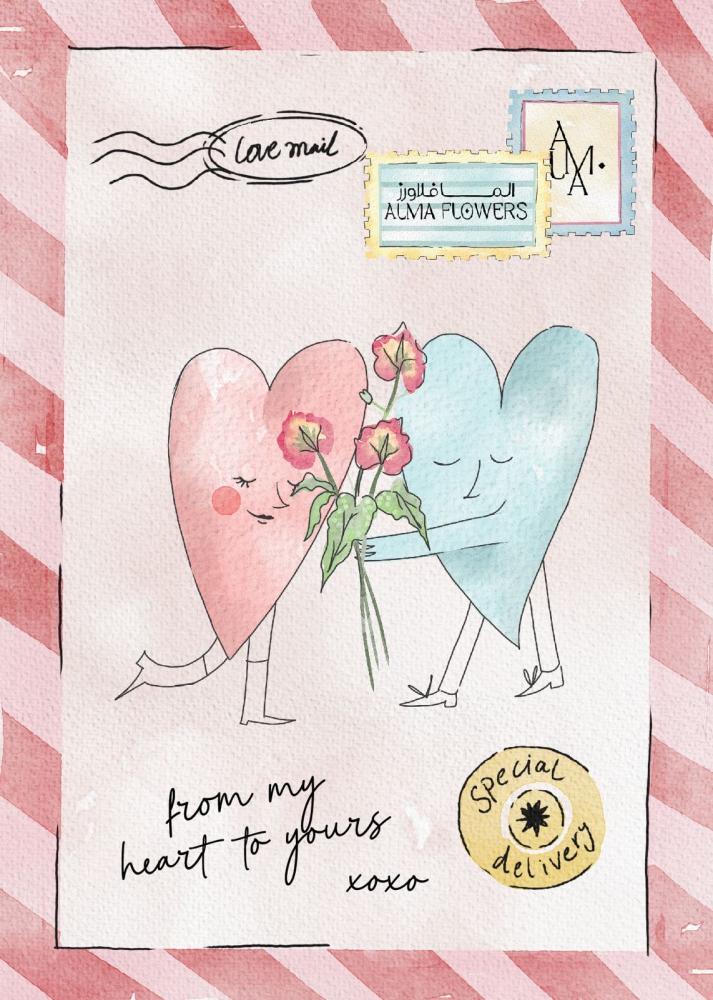 Love mail
ALMA.
المـــا فلاورز
ALMA FLOWERS
Special
delivery
from my
heart to yours
xoxo